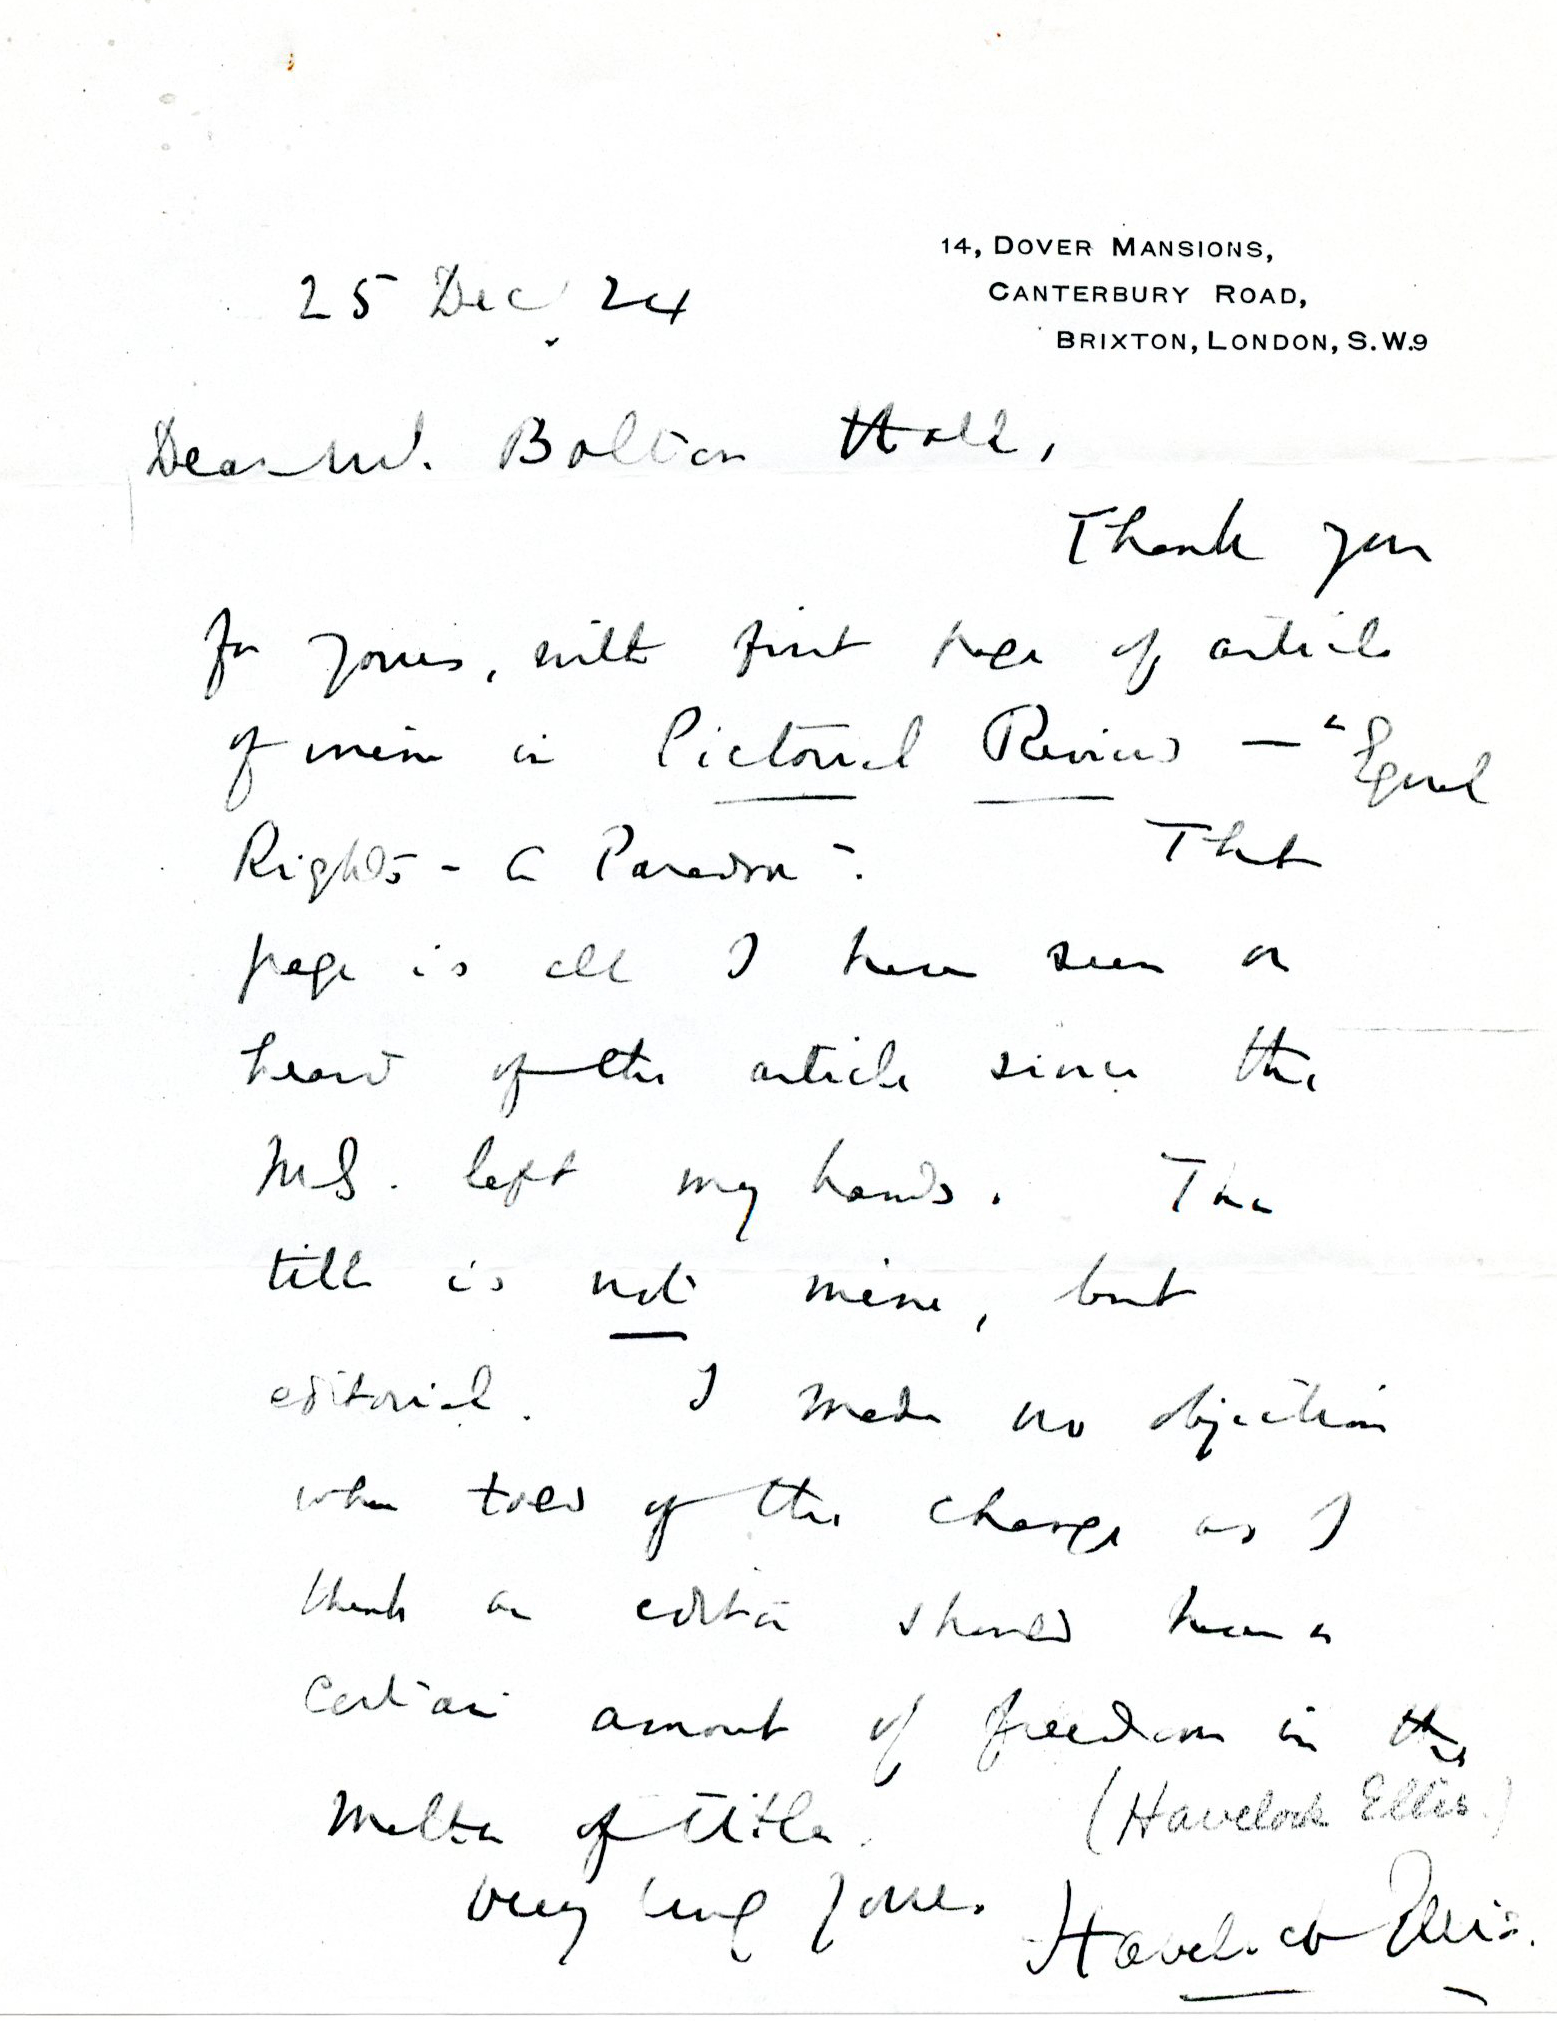 14, DOVER MANSIONS,
CANTERBURY ROAD,
BRIXTON, LONDON, S.W.9
25 Dec, 24
Dear Mr. Bolton Hall,
Thank you
for yours, with first page of article
of mine in Pictorial Review — "Equal
Rights - a Paradox". That
page is all I have seen or
heard of the article since the
MS. left my hands. The
title is not mine, but
editorial. I made no objection
when told of the change as I
think an editor should have a
certain amount of freedom in this
matter of title.
(Havelock Ellis.)
Very truly yours.
Havelock Ellis.